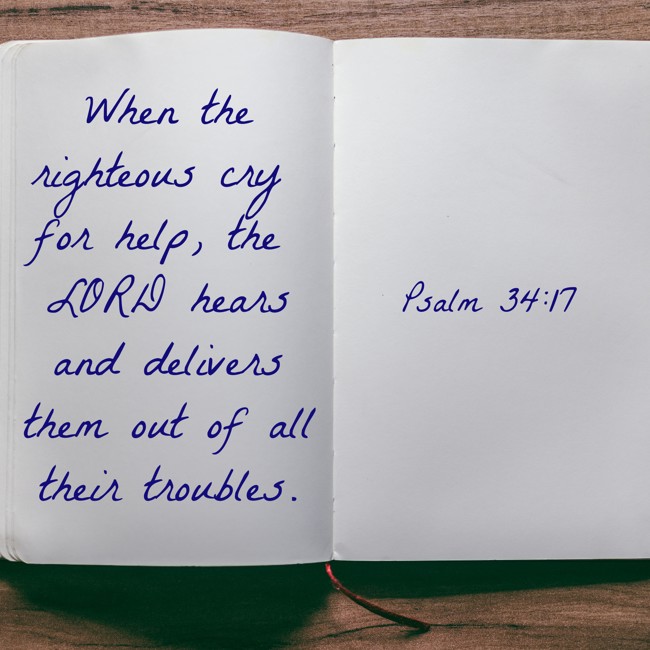 When the
righteous cry
for help, the
LORD hears
and delivers
them out of all
their troubles.
Psalm 34:17